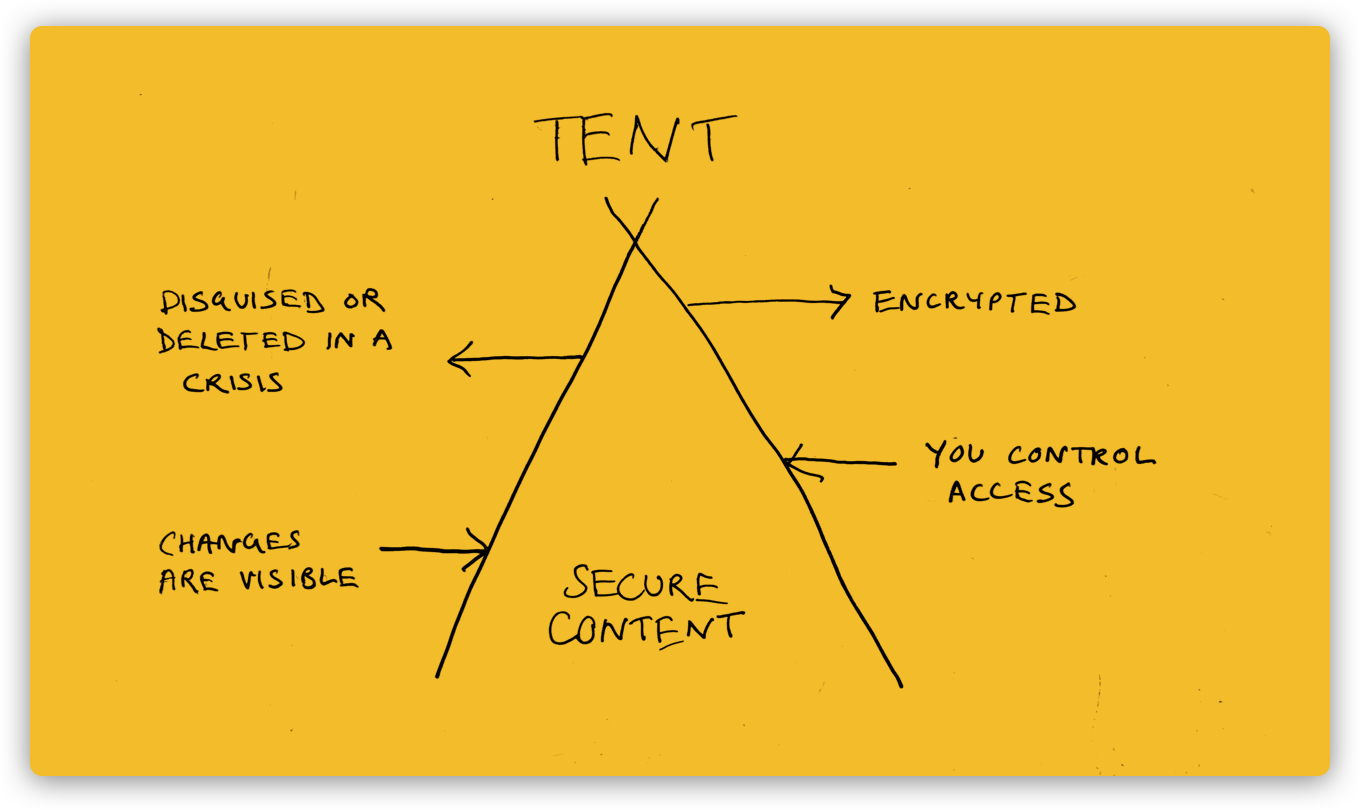 TENT
DISGUISED OR
DELETED IN A
CRISIS
ENCRYPTED
YOU CONTROL
ACCESS
CHANGES
ARE VISIBLE
SECURE
CONTENT